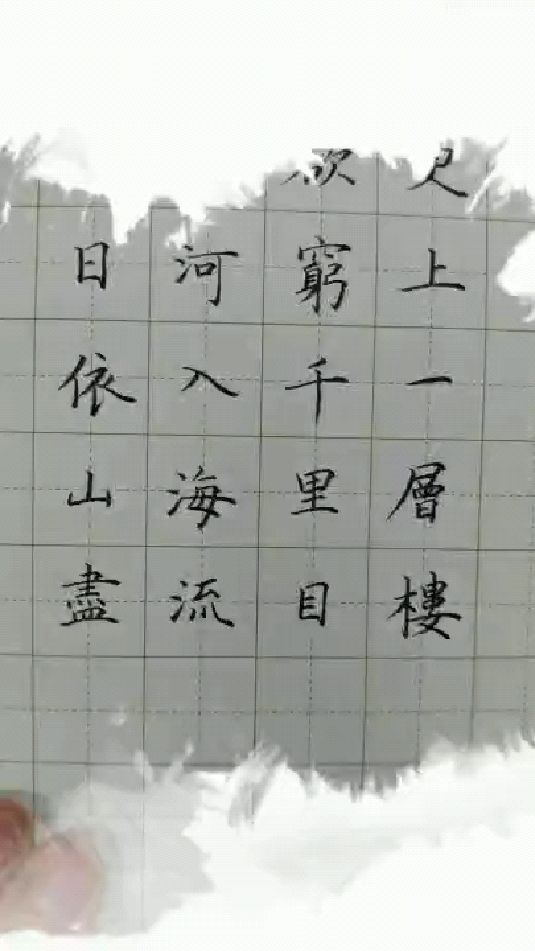 日依山盡
河入海流
窮千里目
上一層樓